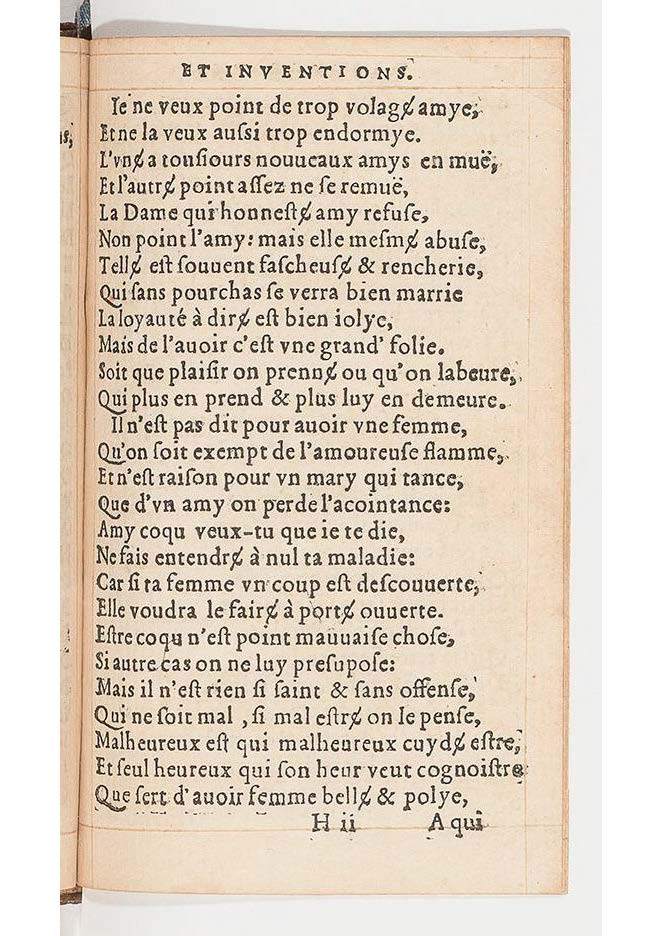 ET INVENTIONS.
Ie ne veux point de trop volagɇ amye,
Et ne la veux auſſi trop endormye.
L'vnɇ a touſiours nouueaux amys en muë,
Et l'autrɇ point aſſez ne ſe remuë,
La Dame qui honneſtɇ amy refuſe,
Non point l'amy: mais elle meſmɇ abuſe,
Tellɇ eſt ſouuent faſcheuſɇ & rencherie,
Qui ſans pourchas ſe verra bien marrie
La loyauté à dirɇ eſt bien iolye,
Mais de l'auoir c'eſt vne grand' folie.
Soit que plaiſir on prennɇ ou qu'on labeure,
Qui plus en prend & plus luy en demeure.
Il n'eſt pas dit pour auoir vne femme,
Qu'on ſoit exempt de l'amoureuſe flamme,
Et n'eſt raiſon pour vn mary qui tance,
Que d'vn amy on perde l'acointance:
Amy coqu veux-tu que ie te die,
Ne fais entendrɇ à nul ta maladie:
Car ſi ta femme vn coup eſt deſcouuerte,
Elle voudra le fairɇ à portɇ ouuerte.
Eſtre coqu n'eſt point mauuaiſe choſe,
Si autre cas on ne luy preſupoſe:
Mais il n'eſt rien ſi ſaint & ſans offenſe,
Qui ne ſoit mal , ſi mal eſtrɇ on le penſe,
Malheureux eſt qui malheureux cuydɇ eſtre,
Et ſeul heureux qui ſon heur veut cognoiſtre
Que ſert d'auoir femme bellɇ & polye,
H ii A qui